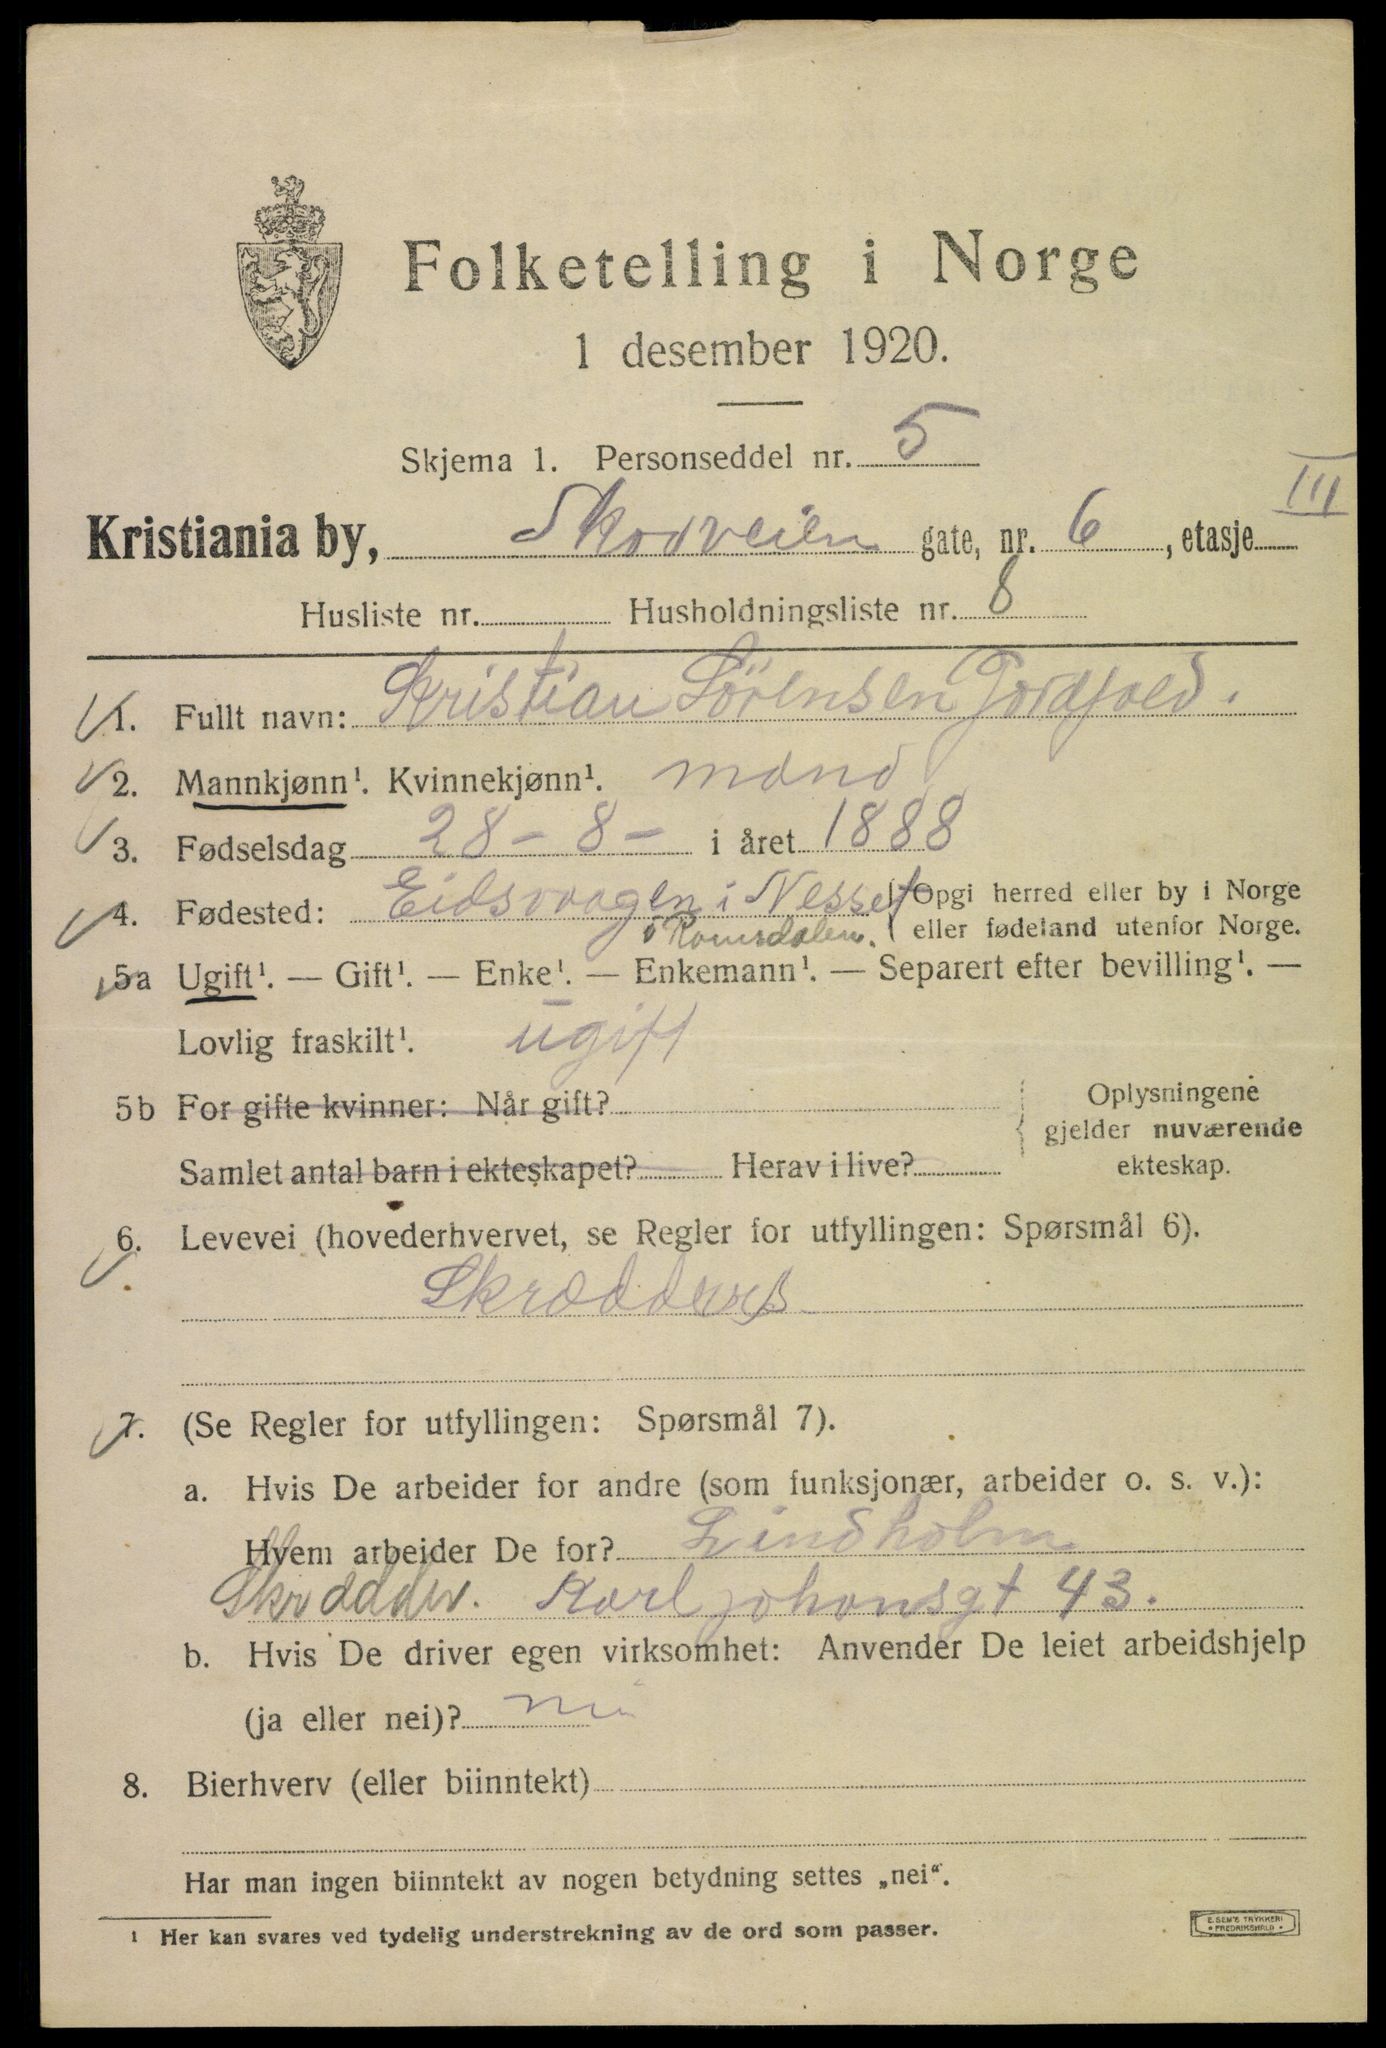 Folketelling i Norge
1 desember 1920.
Skjema 1. Personseddel nr. 5
Kristiania by, Skovveien gate, nr. 6, etasje III
Husliste nr. Husholdningsliste nr. 8
1. Fullt navn: Kristian Sörensen
2. Mannkjønn¹. Kvinnekjønn¹. mand
3. Fødselsdag 28 - 8 - i året 1888
4. Fødested: Eidsvaagen i Nesset (Opgi herred eller by i Norge
i Romsdalen. eller fødeland utenfor Norge.
5a Ugift¹. — Gift¹. — Enke¹. — Enkemann¹. — Separert efter bevilling¹. —
Lovlig fraskilt¹. ugift
5b For gifte kvinner: Når gift? Oplysningene
gjelder nuværende
Samlet antal barn i ekteskapet? Herav i live? ekteskap.
6. Levevei (hovederhvervet, se Regler for utfyllingen: Spørsmål 6).
7. (Se Regler for utfyllingen: Spørsmål 7).
a. Hvis De arbeider for andre (som funksjonær, arbeider o. s. v.):
Hvem arbeider De for? Lindholm
Skrædder. Karl johansgt 43.
b. Hvis De driver egen virksomhet: Anvender De leiet arbeidshjelp
(ja eller nei)? nei
8. Bierhverv (eller biinntekt)
Har man ingen biinntekt av nogen betydning settes „nei“.
¹ Her kan svares ved tydelig understrekning av de ord som passer.
E. SEM'S TRYKKERI
FREDRIKSHALD